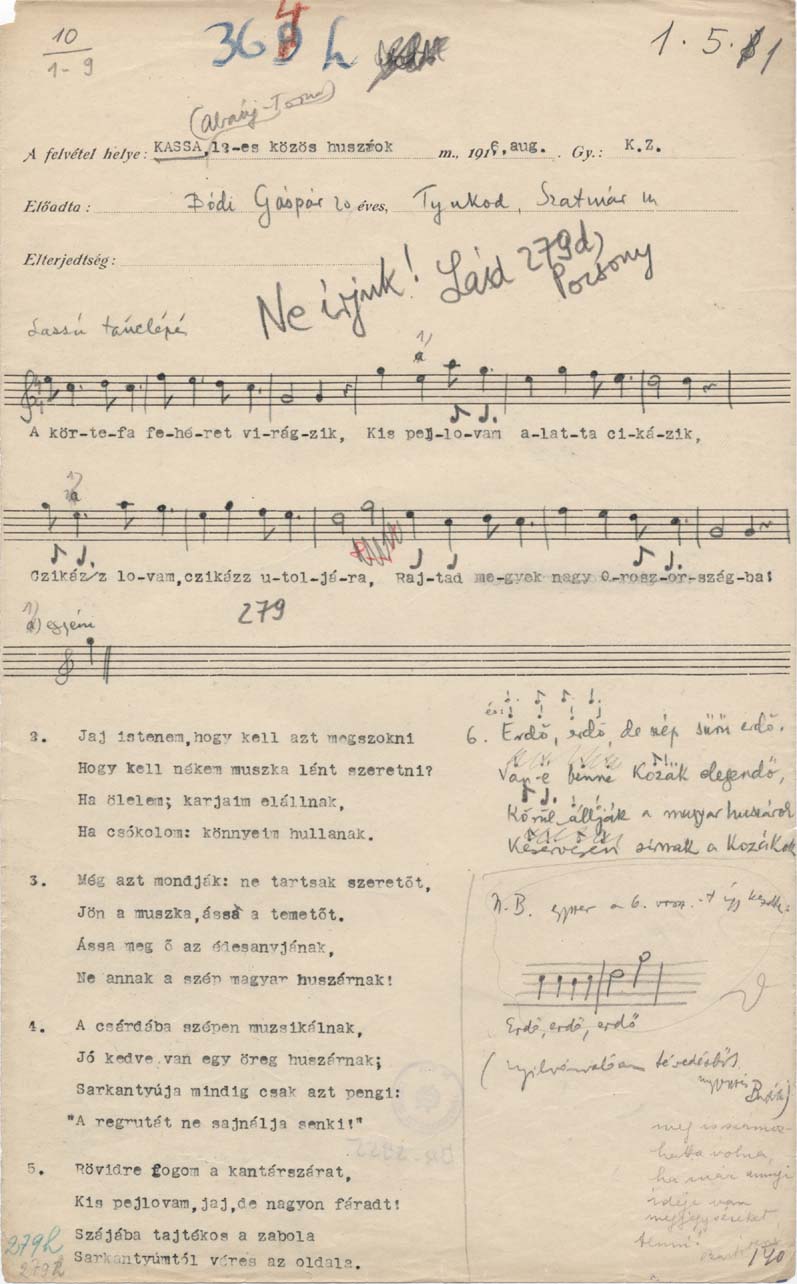 10
1-9
1.5.
(Abaúj-Torna)
A felvétel helye: KASSA, 12-es közös huszárok m., 1916. aug. Gy.: K.Z.
Előadta: Dódi Gáspár 20 éves, Tyukod, Szatmár m
Elterjedtség:
Ne írjuk! Lásd 279d)
Pozsony
Lassú tánclépés
1)
a
A kör-te-fa fe-hé-ret vi-rág-zik, Kis pej-lo-vam a-lat-ta ci-ká-zik,
1)
a
Czikáz/z lo-vam,czikázz u-tol-já-ra, Raj-tad me-gyek nagy O-rosz-or-szág-ba!
1)
a) egyéni 279
2. Jaj istenem,hogy kell azt megszokni
Hogy kell nékem muszka lánt szeretni?
Ha ölelem; karjaim elállnak,
Ha csókolom: könnyeim hullanak.
3. Még azt mondják: ne tartsak szeretőt,
Jön a muszka,ássa a temetőt.
Ássa meg ő az édesanyjának,
Ne annak a szép magyar huszárnak!
4. A csárdába szépen muzsikálnak,
Jó kedve van egy öreg huszárnak;
Sarkantyúja mindig csak azt pengi:
"A regrutát ne sajnálja senki!"
5. Rövidre fogom a kantárszárat,
Kis pejlovam,jaj,de nagyon fáradt!
Szájába tajtékos a zabola
Sarkantyúmtól véres az oldala.
279h
279h
és:
6. Erdő, erdő, de nép sűrű erdő.
Van-e benne Kozák elegendő,
Körül állják a magyar huszárok
Keservesen sírnak a Kozákok
N.B. egyszer a 6. vssz.-t így kezdte:
Erdő, erdő, erdő
(nyilvánvalóan tévedésből
Bartók)
meg is
hatta volna,
ha már annyi
ideje van
megjegyzéseket
tenni!
190